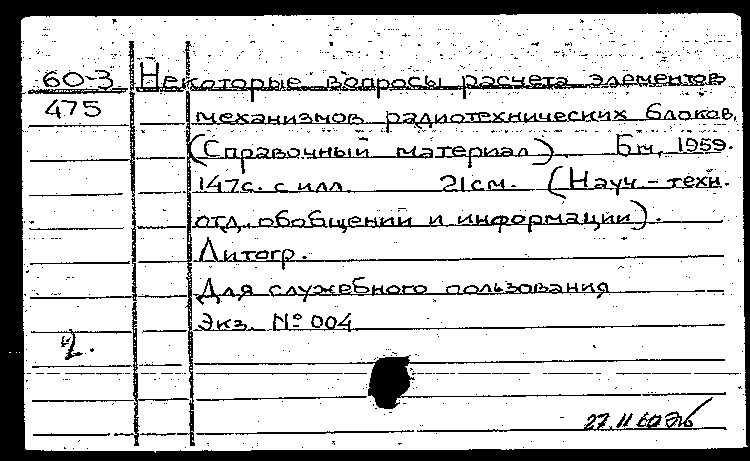 60-3 Некоторые вопросы расчета элементов
475 механизмов радиотехнических блоков.
(Справочный материал). Бм, 1959.
147с. с илл. 21см. (Науч-техн.
отд. обобщении и информации).
Литогр.
Для служебного пользования
Экз. № 004
2.
27.11.60